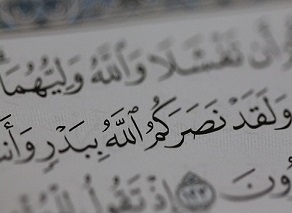 أَن تَفْشَلَا وَٱللَّهُ وَلِيُّهُمَا
وَلَقَدْ نَصَرَكُمُ ٱللَّهُ بِبَدْرٍ وَأَن
ُونَ ١٢٣ إِذْ تَقُولُ لِلْمُؤْ